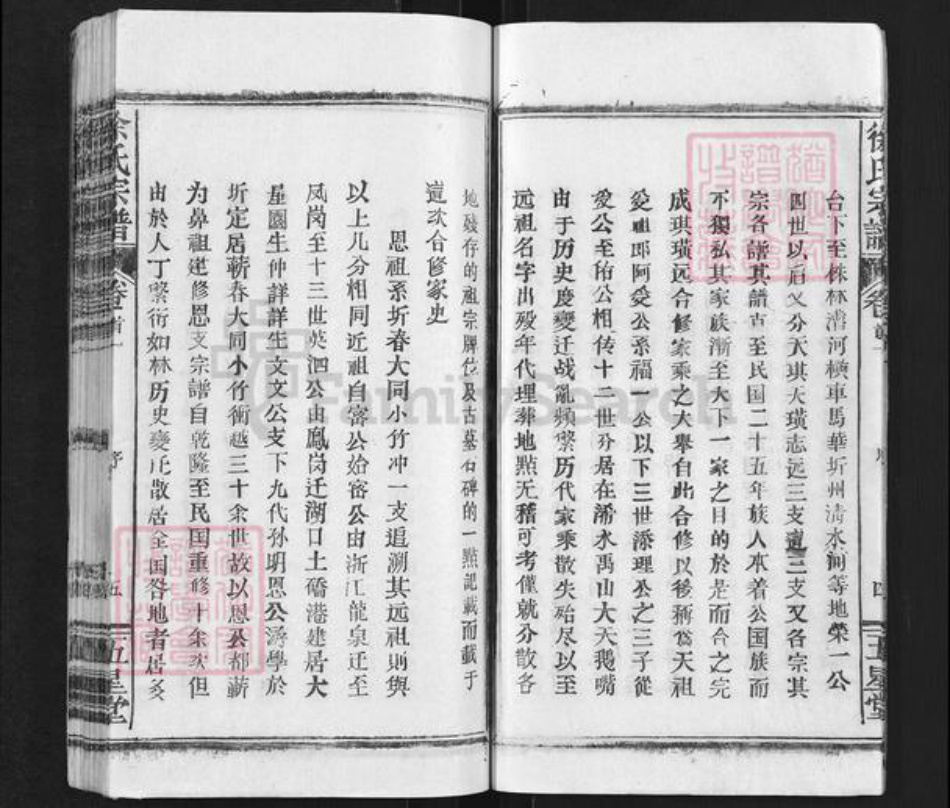 徐氏宗譜
卷首一
序
四
五星堂
台下至株林漕河横車馬華圻州清水河等地榮一公
四世以后又分天琪天璜志远三支這三支又各宗其
宗各譜其譜古至民國二十五年族人本着公国族而
不獨私其家族渐至天下一家之目的於是而合之完
成琪璜远合修家乘之大舉自此合修以後稱爲天祖
爱祖即阿受公系福一公以下三世添理公之三子從
爱公至佑公相传十二世分居在浠水禹山大天鹅嘴
由于历史度變迁战亂频繁历代家乘散失殆尽以至
远祖名字出殁年代埋葬地點无稽可考僅就分散各
地殘存的祖宗牌位及古墓石碑的一點記載而載于
這次合修家史
恩祖系圻春大同小竹冲一支追溯其远祖則與
以上几分相同近祖自容公始容公由浙江龍泉迁至
凤岗至十三世英泗公由鳳岗迁湖口土礄港建居大
星園生仲詳詳生文文公支下九代孙明恩公游學於
圻定居蘄春大同小竹衝越三十余世故以恩公都蘄
为鼻祖建修恩支宗譜自乾隆至民国重修十余次但
由於人丁繁衍如林历史變迁散居全国各地者居多
徐氏宗譜
卷首一
序
五
五星堂
FamilySearch